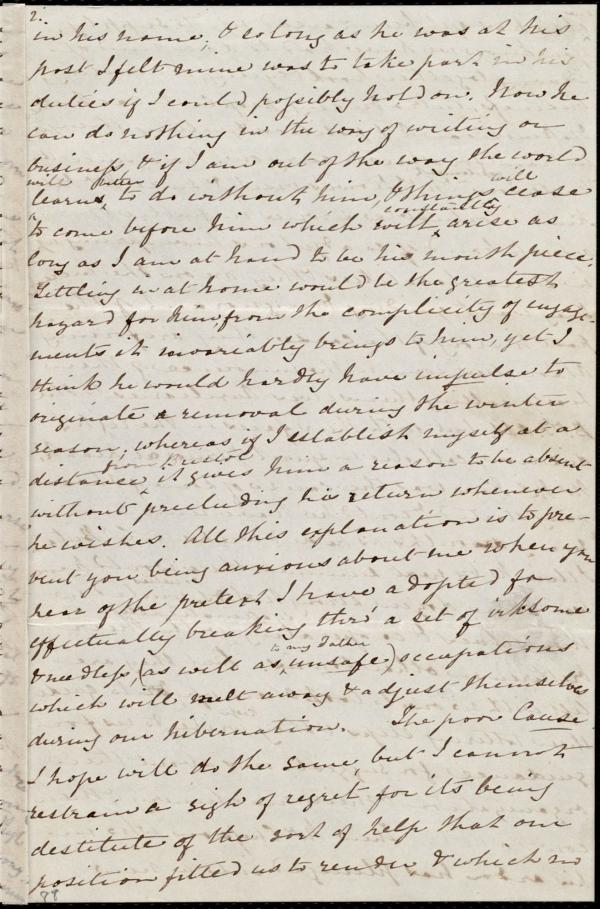 2.
in his name, & so long as he was at his
post I felt mine was to take part in his
duties if I could possibly hold on. Now he
can do nothing in the way of writing or
business & if I am out of the way the world
will better will
learns, to do without him, & things cease
constantly
to come before him which will arise as
long as I am at hand to be his mouth piece.
Settling in at home would be the greatest
hazard for him from the complicity of engage-
ments it invariably brings to him, yet I
think he would hardly have impulse to
originate a removal during the winter
season, whereas if I establish myself at a
from Bristol
distance, it gives him a reason to be absent
without precluding his return whenever
he wishes. All this explanation is to pre-
vent you being anxious about me when you
hear of the pretext I have adopted for
effectually breaking thro' a set of irksome
to my Father
& needless, (as well as unsafe) occupations
which will melt away & adjust themselves
during our hibernation. The poor Cause
I hope will do the same, but I cannot
restrain a sigh of regret for its being
destitute of the sort of help that our
position fitted us to render & which no